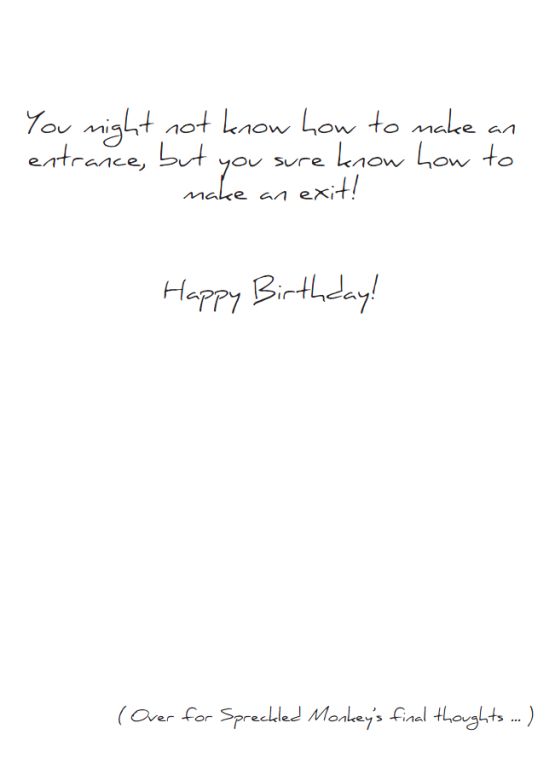 You might not know how to make an
entrance, but you sure know how to
make an exit!
Happy Birthday!
( Over for Spreckled Monkey's final thoughts ... )